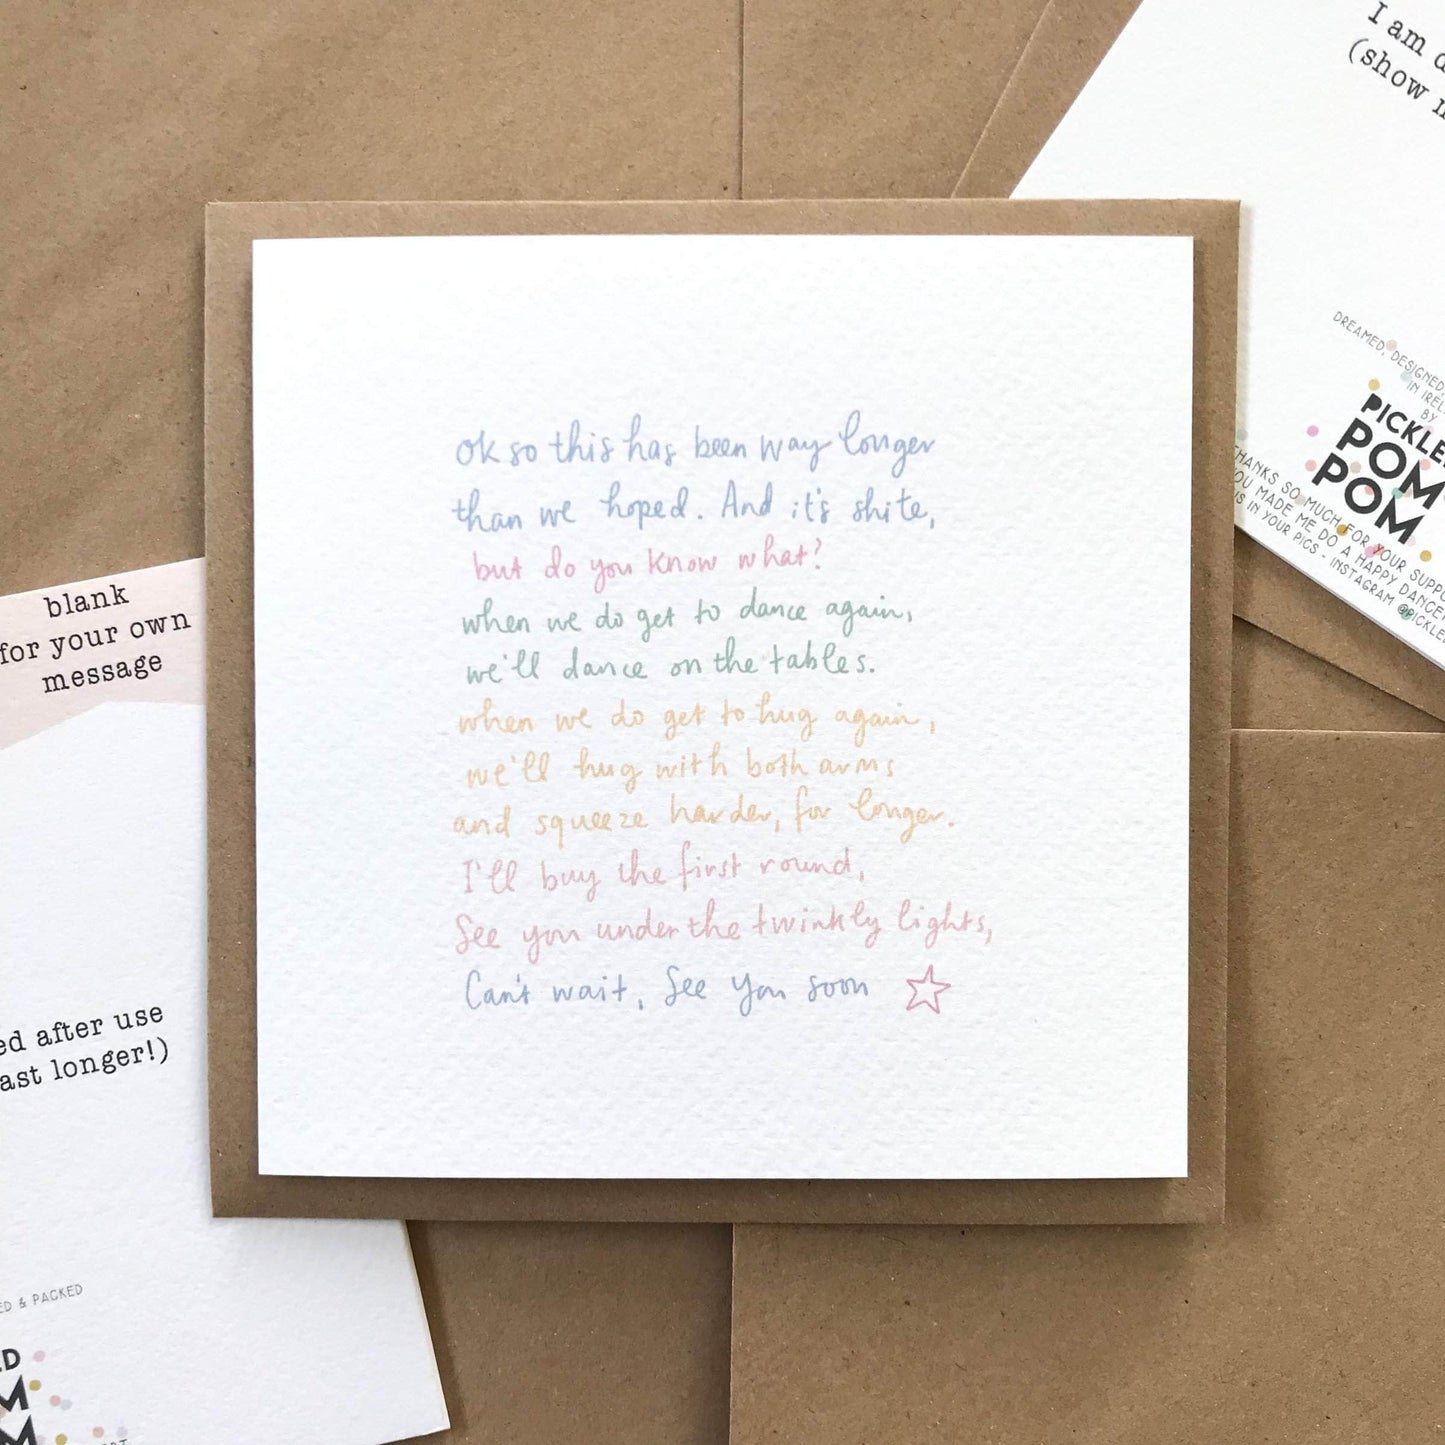 ok so this has been way longer
than we hoped. And it's shite,
but do you know what?
when we do get to dance again,
we'll dance on the tables.
when we do get to hug again,
we'll hug with both arms
and squeeze harder, for longer.
I'll buy the first round,
See you under the twinkly lights,
Can't wait, See you soon
I am
(show
DREAMED, DESIGNED,
IN IREL
BY
PICKLE
POM
POM
THANKS SO MUCH FOR YOUR SUPPO
YOU MADE ME DO A HAPPY DANCE!
US IN YOUR PICS - INSTAGRAM @PICKLE
blank
for your own
message
ed after use
ast longer!)
ED & PACKED
ED
M
M